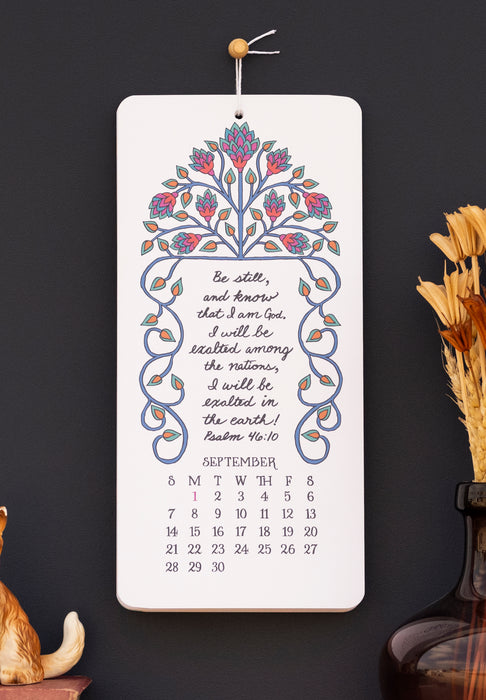 Be still,
and know
that I am God.
I will be
exalted among
the nations,
I will be
exalted in
the earth!
Psalm 46:10
SEPTEMBER
S M T W TH F S
1 2 3 4 5 6
7 8 9 10 11 12 13
14 15 16 17 18 19 20
21 22 23 24 25 26 27
28 29 30